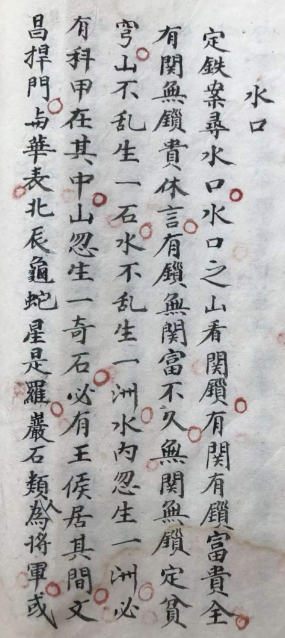 水口
定鉄案尋水口水口之山看関鎖有関有鎖富貴全
有関無鎖貴休言有鎖無関富不久無関無鎖定貧
穹山不乱生一石水不乱生一洲水内忽生一洲必
有科甲在其中山忽生一竒石必有王侯居其間文
昌捍門与華表北辰龜蛇星是羅嚴石類為人将軍或